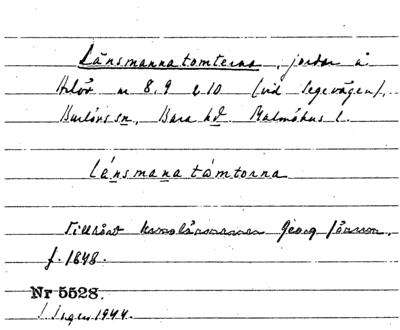 Länsmannatomterna, jordar å
Arlöv nr 8, 9 & 10 (vid Segevägen),
Burlövs sn, Bara hd Malmöhus l.
lánsmanatámtorna
Tillhört kronolänsmannen Georg Jönsson,
f. 1848.
Nr 5528.
1944.